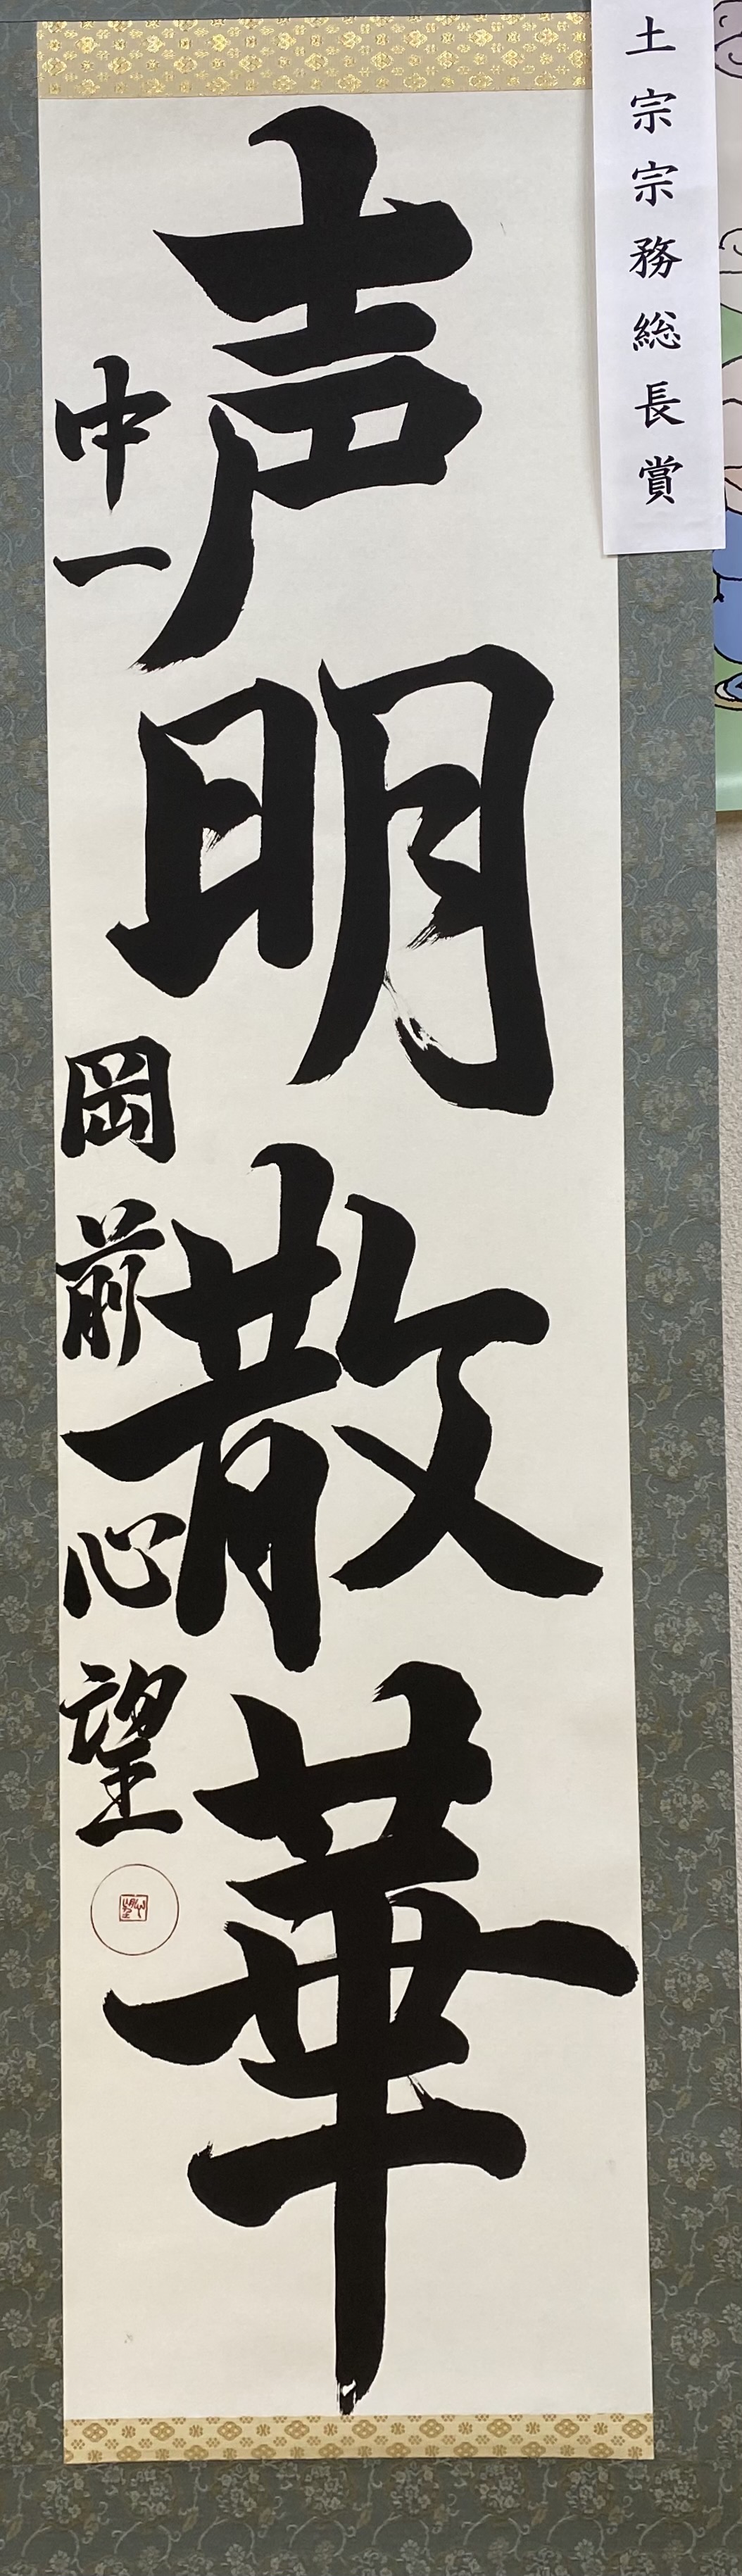 土宗宗務総長賞
声明散華
中一 岡前心望